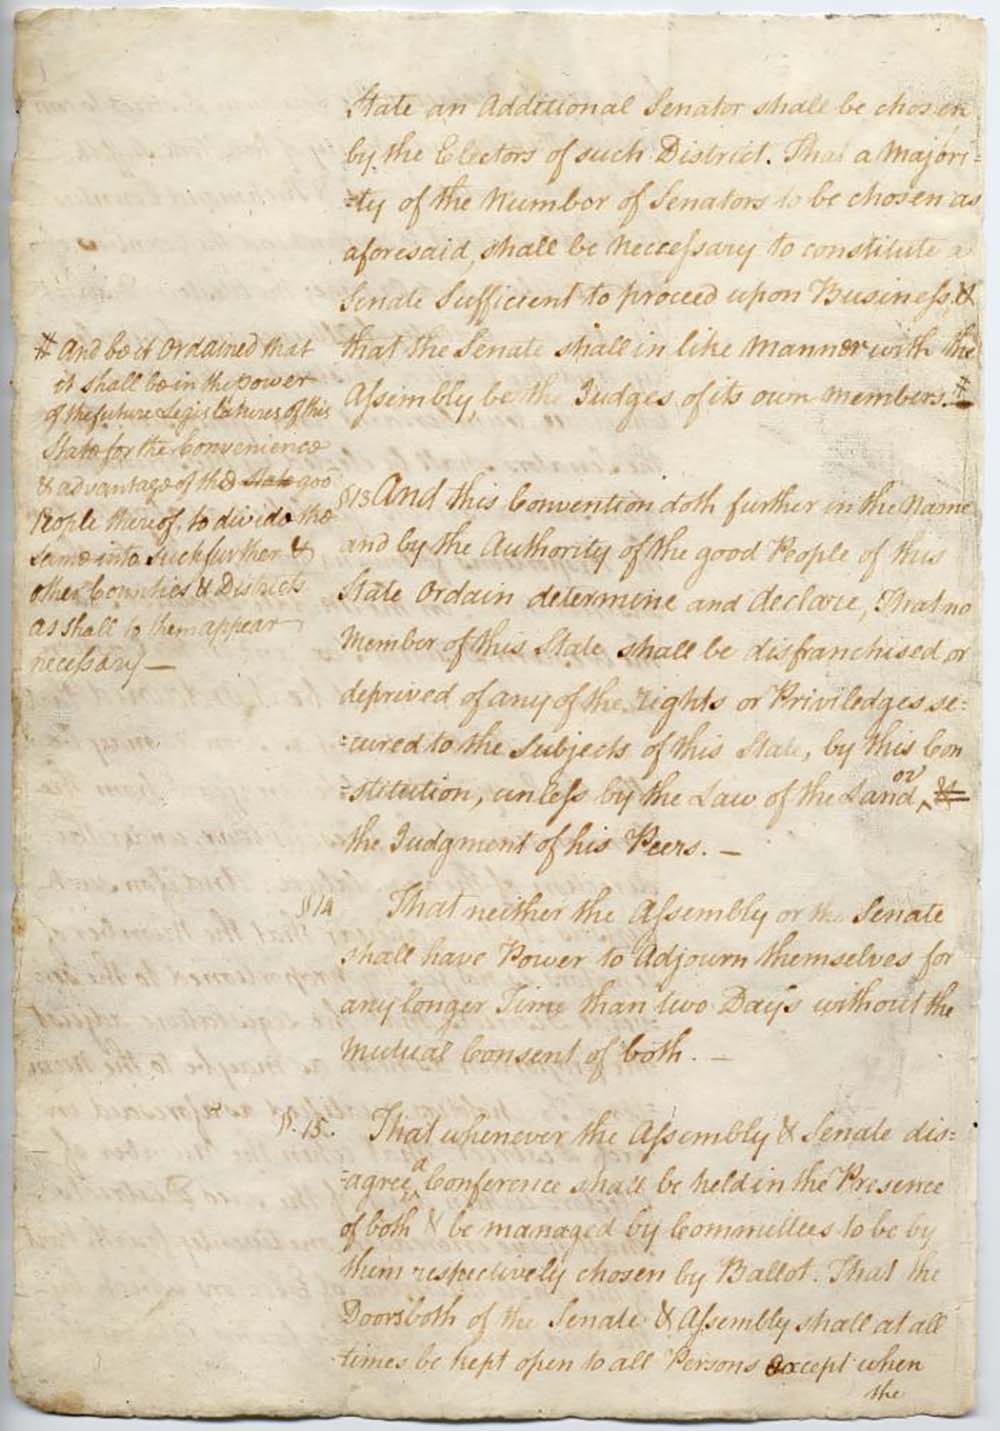 State an Additional Senator shall be chosen
by the Electors of such District. That a Majori=
=ty of the Number of Senators to be chosen as
aforesaid, shall be Neccessary to constitute a
Senate Sufficient to proceed upon Business, &
that the Senate shall in like Manner with the
Assembly, be the Judges of its own Members. #
# And be it Ordained that
it shall be in the power
of the future Legislatures of this
State for the Convenience
& advantage of the State good
People thereof, to divide the
same into such further &
other Counties & Districts
as shall to them appear
necessary —
§13 And this Convention doth further in the Name
and by the Authority of the good People of this
State Ordain determine and declare, That no
Member of this State shall be disfranchised or
deprived of any of the rights or Priviledges se=
=cured to the Subjects of this State, by this Con
=stitution, unless by the Law of the Land or &
the Judgment of his Peers. —
§14 That neither the Assembly or the Senate
shall have Power to Adjourn themselves for
any longer Time than two Days without the
Mutual Consent of both. —
§.15. That whenever the Assembly & Senate dis=
=agree a Conference shall be held in the Presence
of both & be managed by Committees to be by
them respectively chosen by Ballot. That the
Doors both of the Senate & Assembly shall at all
times be kept open to all Persons except when
the